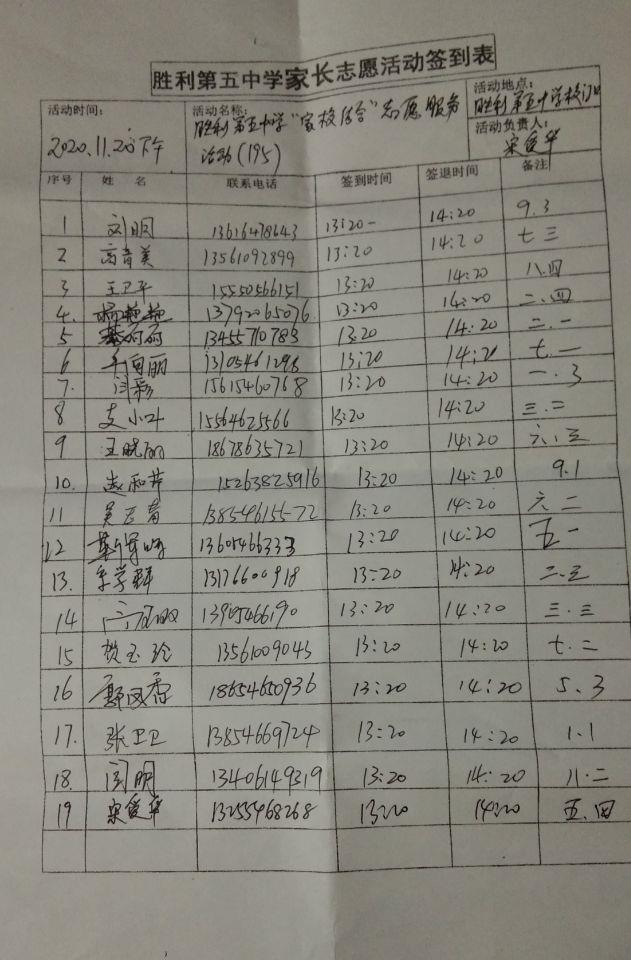 胜利第五中学家长志愿活动签到表
活动时间: 2020.11.20下午
活动名称: 胜利第五中学"家校结合"志愿服务
活动(195)
活动地点: 胜利第五中学校门口
活动负责人: 宋爱华
序号 姓名 联系电话 签到时间 签退时间 备注
1 刘明 13616478643 13:20- 14:20 9.3
2 高青美 13561092899 13:20 14:20 七三
3 王卫平 15550566151 13:20 14:20 八.四
4. 艳艳 13792065076 13:20 14:20 二.四
5 13455710783 13:20 14:20 二.一
6 丽 13105461298 13:20 14:20 七.一
7. 闫彩 15615460768 13:20 14:20 一.3
8 支小叶 15564625566 13:20 14:20 三.二
9 王晓丽 18678635721 13:20 14:20 六.三
10. 赵和芹 15263825916 13:20 14:20 9.1
11 吴云 13854615572 13:20 14:20 六二
12 13605466333 13:20 14:20 五一
13. 李学群 13176600918 13:20 14:20 二.三
14 13905466190 13:20 14:20 三.三
15 贺玉玲 13561009043 13:20 14:20 七.二
16 郭凤香 18654650936 13:20 14:20 5.3
17. 张卫卫 13854669724 13:20 14:20 1.1
18. 闫明 13406149319 13:20 14:20 八.二
19 宋爱华 13255468268 13:20 14:20 五.四